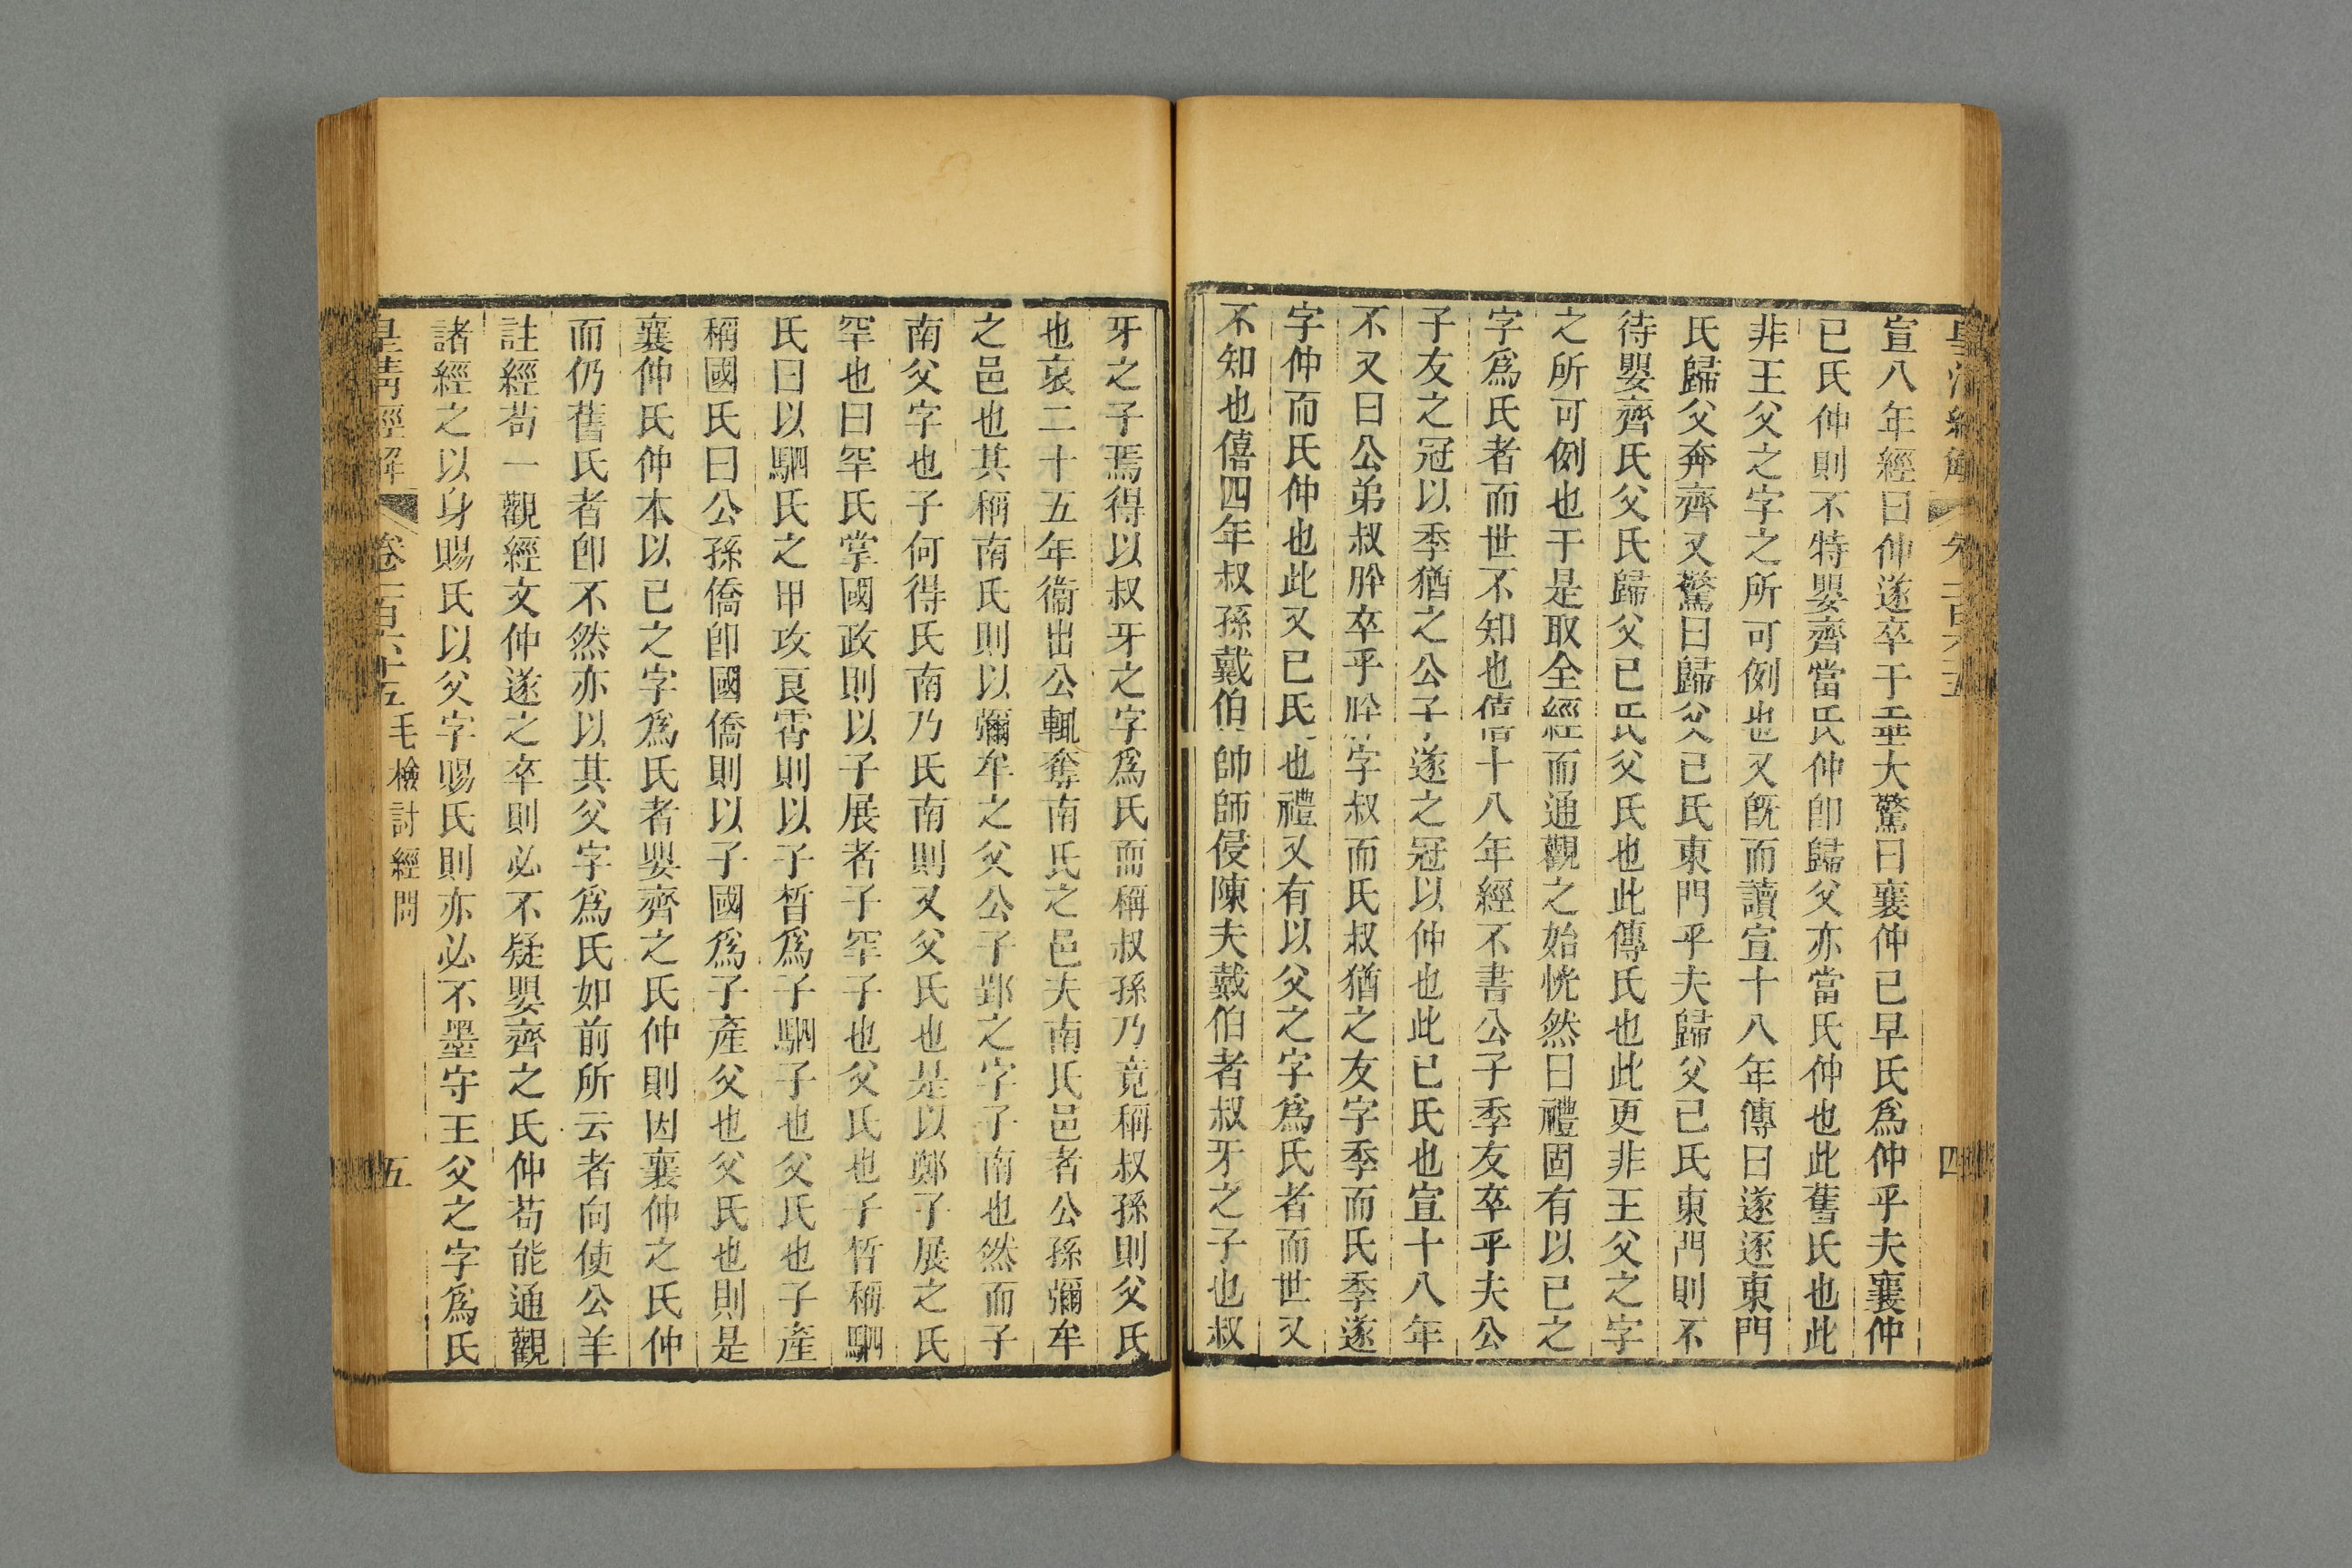 皇清經解 卷一百六十五 四
宣八年經曰仲遂卒于垂大驚曰襄仲已早氏爲仲乎夫襄仲
已氏仲則不特嬰齊當氏仲卽歸父亦當氏仲也此舊氏也此
非王父之字之所可例也又旣而讀宣十八年傳曰遂逐東門
氏歸父奔齊又驚曰歸父已氏東門乎夫歸父已氏東門則不
待嬰齊氏父氏歸父已氏父氏也此傳氏也此更非王父之字
之所可例也于是取全經而通觀之始恍然曰禮固有以已之
字爲氏者而世不知也僖十八年經不書公子季友卒乎夫公
子友之冠以季猶之公子遂之冠以仲也此已氏也宣十八年
不又曰公弟叔肹卒乎肹字叔而氏叔猶之友字季而氏季遂
字仲而氏仲也此又已氏也禮又有以父之字爲氏者而世又
不知也僖四年叔孫戴伯帥師侵陳夫戴伯者叔牙之子也叔
牙之子焉得以叔牙之字爲氏而稱叔孫乃竟稱叔孫則父氏
也哀二十五年衞出公輒奪南氏之邑夫南氏邑者公孫彌牟
之邑也其稱南氏則以彌牟之父公子郢之字子南也然而子
南父字也子何得氏南乃氏南則又父氏也是以鄭子展之氏
罕也曰罕氏掌國政則以子展者子罕子也父氏也子晳稱駟
氏曰以駟氏之甲攻良霄則以子晳爲子駟子也父氏也子產
稱國氏曰公孫僑卽國僑則以子國爲子產父也父氏也則是
襄仲氏仲本以已之字爲氏者嬰齊之氏仲則因襄仲之氏仲
而仍舊氏者卽不然亦以其父字爲氏如前所云者向使公羊
註經苟一觀經文仲遂之卒則必不疑嬰齊之氏仲苟能通觀
諸經之以身賜氏以父字賜氏則亦必不墨守王父之字爲氏
皇清經解 卷一百六十五 毛檢討經問 五